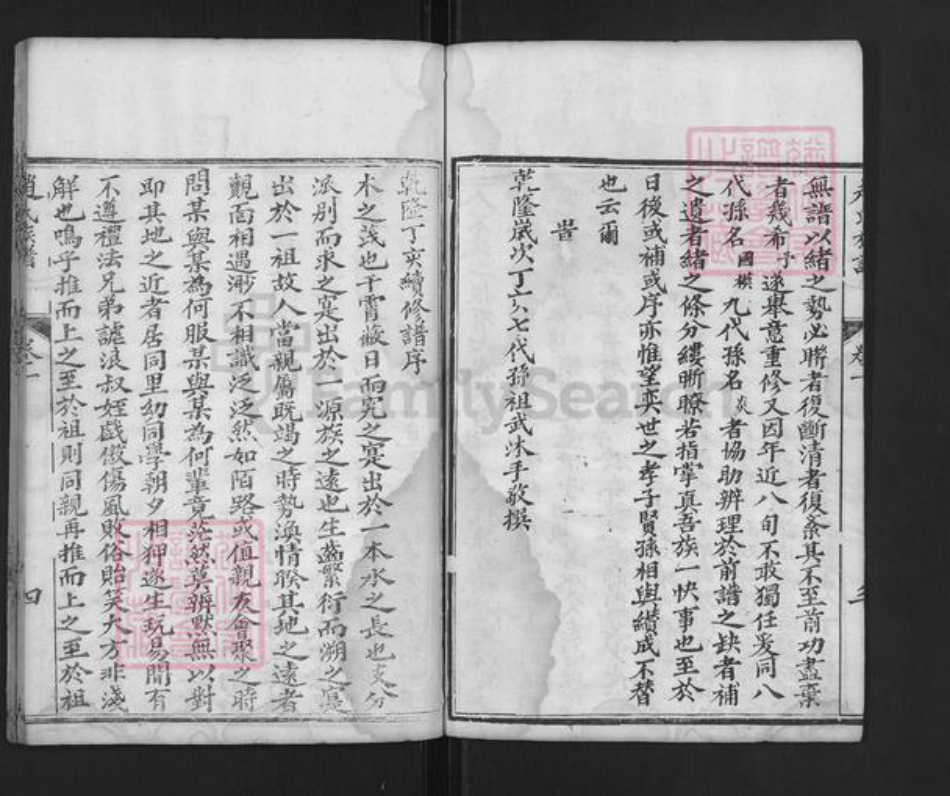 無譜以緒之勢必聯者復斷清者復紊其不至前功盡棄
者幾希予遂舉意重修又因年近八旬不敢獨任爰同八
代孫名國橫九代孫名炎者協助辨理於前譜之缺者補
之遺者緒之條分縷晰瞭若指掌真吾族一快事也至於
日後或補或序亦惟望奕世之孝子賢孫相與續成不替
也云爾
旹
乾隆歲次丁亥七代孫祖武沐手敬撰
三
乾隆丁亥續修譜序
木之茂也干霄蔽日而究之寔出於一本水之長也支分
派別而求之寔出於一源族之遠也生齒繁衍而溯之寔
出於一祖故人當親屬既竭之時勢渙情睽其地之遠者
覿面相遇渺不相識泛泛然如陌路或值親友會聚之時
問某與某為何服某與某為何輩竟茫然莫辨默無以對
即其地之近者居同里幼同學朝夕相狎遂生玩易間有
不遵禮法兄弟謔浪叔姪戲傲傷風敗俗貽笑大方非淺
解也嗚乎推而上之至於祖則同親再推而上之至於祖
趙氏族譜 卷一 四
FamilySearch